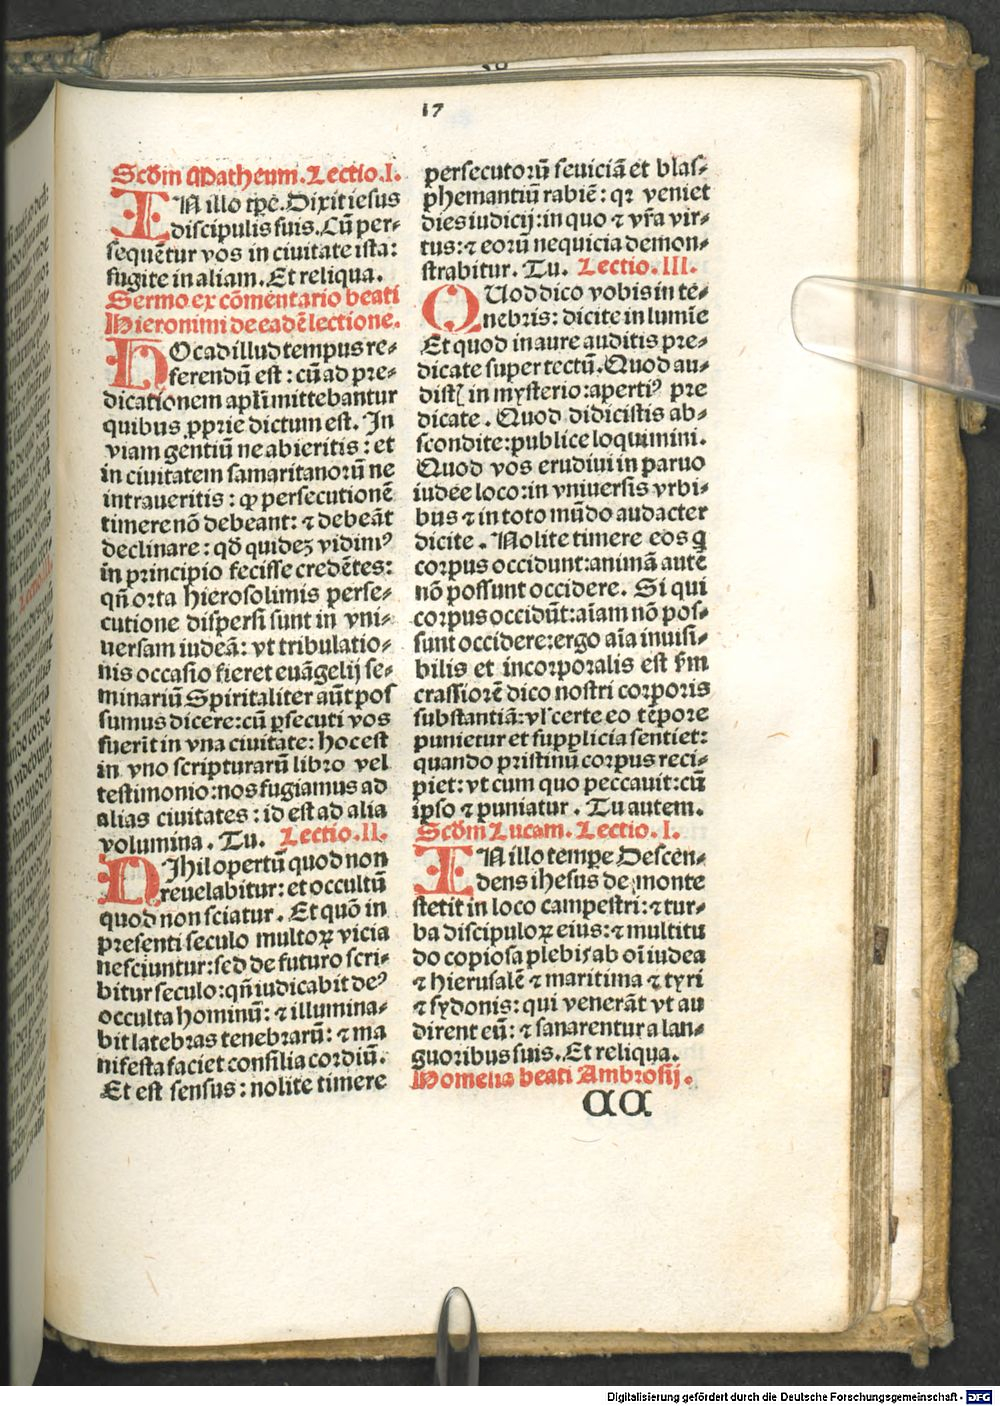 17
Scđm Matheum. Lectio. I.
IN illo tp̄e. Dixit iesus
discipulis suis. Cū per⸗
sequētur vos in ciuitate ista:
fugite in aliam. Et reliqua.
Sermo ex cōmentario beati
Hieronimi de eadē lectione.
HOc ad illud tempus re⸗
ferendū est: cū ad pre⸗
dicationem apl̄i mittebantur
quibus ꝓprie dictum est. In
viam gentiū ne abieritis: et
in ciuitatem samaritanorū ne
intraueritis: ꝙ persecutionē
timere nō debeant: ⁊ debeāt
declinare: qđ quideꝫ vidimꝰ
in principio fecisse credētes:
qn̄ orta hierosolimis perse⸗
cutione dispersi sunt in vni⸗
uersam iudeā: vt tribulatio⸗
nis occasio fieret euāgelij se⸗
minariū Spiritaliter aūt pos
sumus dicere: cū ꝑsecuti vos
fuerīt in vna ciuitate: hoc est
in vno scripturarū libro vel
testimonio: nos fugiamus ad
alias ciuitates: id est ad alia
volumina. Tu. Lectio. II.
NIhil opertū quod non
reuelabitur: et occultū
quod non sciatur. Et quō in
presenti seculo multoꝝ vicia
nesciuntur: sed de futuro scri⸗
bitur seculo: qn̄ iudicabit deꝰ
occulta hominū: ⁊ illumina⸗
bit latebras tenebrarū: ⁊ ma
nifesta faciet consilia cordiū.
Et est sensus: nolite timere
persecutorū seuiciā et blas⸗
phemantiū rabiē: qꝛ veniet
dies iudicij: in quo ⁊ vr̄a vir⸗
tus: ⁊ eorū nequicia demon⸗
strabitur. Tu. Lectio. III.
QUod dico vobis in te⸗
nebris: dicite in lumīe
Et quod in aure auditis pre⸗
dicate super tectū. Quod au⸗
distꝭ in mysterio: apertiꝰ pre
dicate. Quod didicistis ab⸗
scondite: publice loquimini.
Quod vos erudiui in paruo
iudee loco: in vniuersis vrbi⸗
bus ⁊ in toto mūdo audacter
dicite. Nolite timere eos q̄
corpus occidunt: animā autē
nō possunt occidere. Si qui
corpus occidūt: aīam nō pos⸗
sunt occidere: ergo aīa inuisi⸗
bilis et incorporalis est ẜm
crassiorē dico nostri corporis
substantiā: vl̕ certe eo tēpore
punietur et supplicia sentiet:
quando pristinū corpus reci⸗
piet: vt cum quo peccauit: cū
ipso ⁊ puniatur. Tu autem.
Scđm Lucam. Lectio. I.
IN illo tempe Descen⸗
dens ihesus de monte
stetit in loco campestri: ⁊ tur⸗
ba discipuloꝝ eius: ⁊ multitu
do copiosa plebis ab oī iudea
⁊ hierusalē ⁊ maritima ⁊ tyri
⁊ sydonis: qui venerāt vt au
dirent eū: ⁊ sanarentur a lan⸗
guoribus suis. Et reliqua.
Homelia beati Ambrosij.
aa
Digitalisierung gefördert durch die Deutsche Forschungsgemeinschaft - DFG